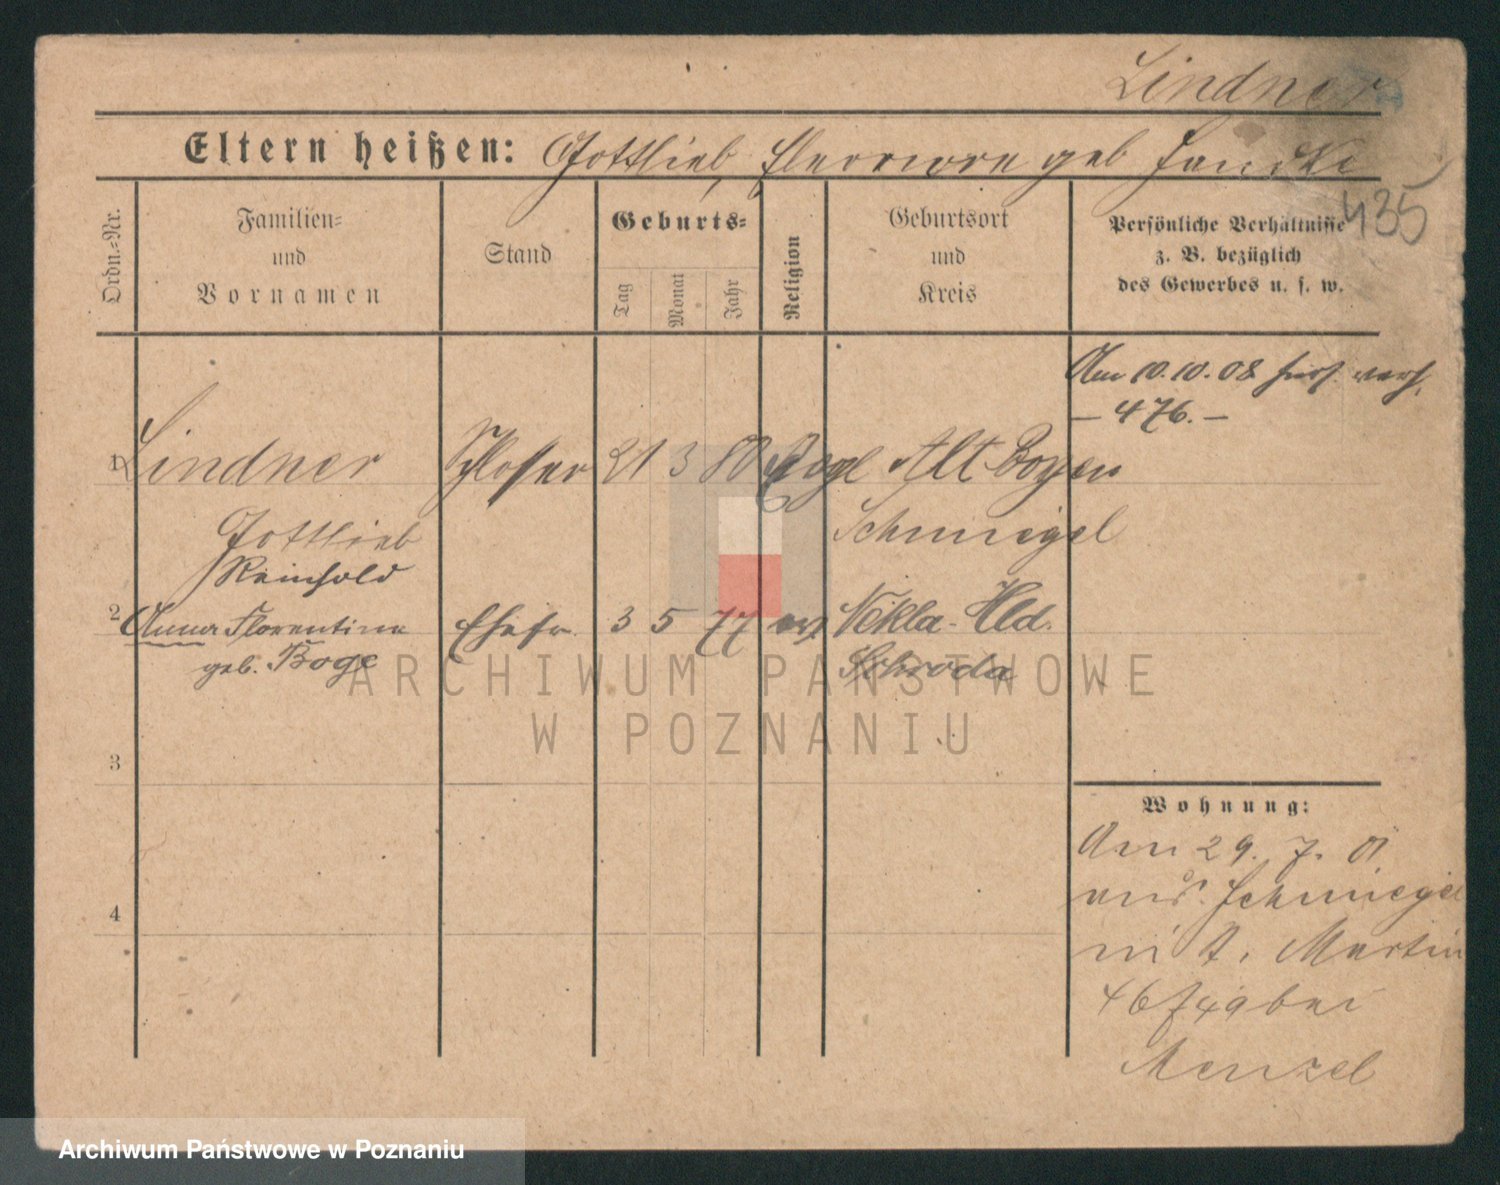 Lindner
Eltern heißen: Gottlieb, geb
435
Ordn.=Nr.
Familien=
und
Vornamen
Stand
Geburts=
Tag
Monat
Jahr
Religion
Geburtsort
und
Kreis
Persönliche Verhältnisse
z. B. bezüglich
des Gewerbes u. s. w.
Am 10.10.08
— 476. —
1 Lindner Schlosser 21 3 80 Evgl Alt Boyen
Gottlieb Schmiegel
Reinhold
2 Anna Florentine Ehefr. 3 5 77 ev Nekla-Hld.
geb. Boge Schroda
3
4
Wohnung:
Am 29. 7. 01
aus Schmiegel
n. St. Martin
46/49 bei
Menzel
ARCHIWUM PAŃSTWOWE
W POZNANIU
Archiwum Państwowe w Poznaniu